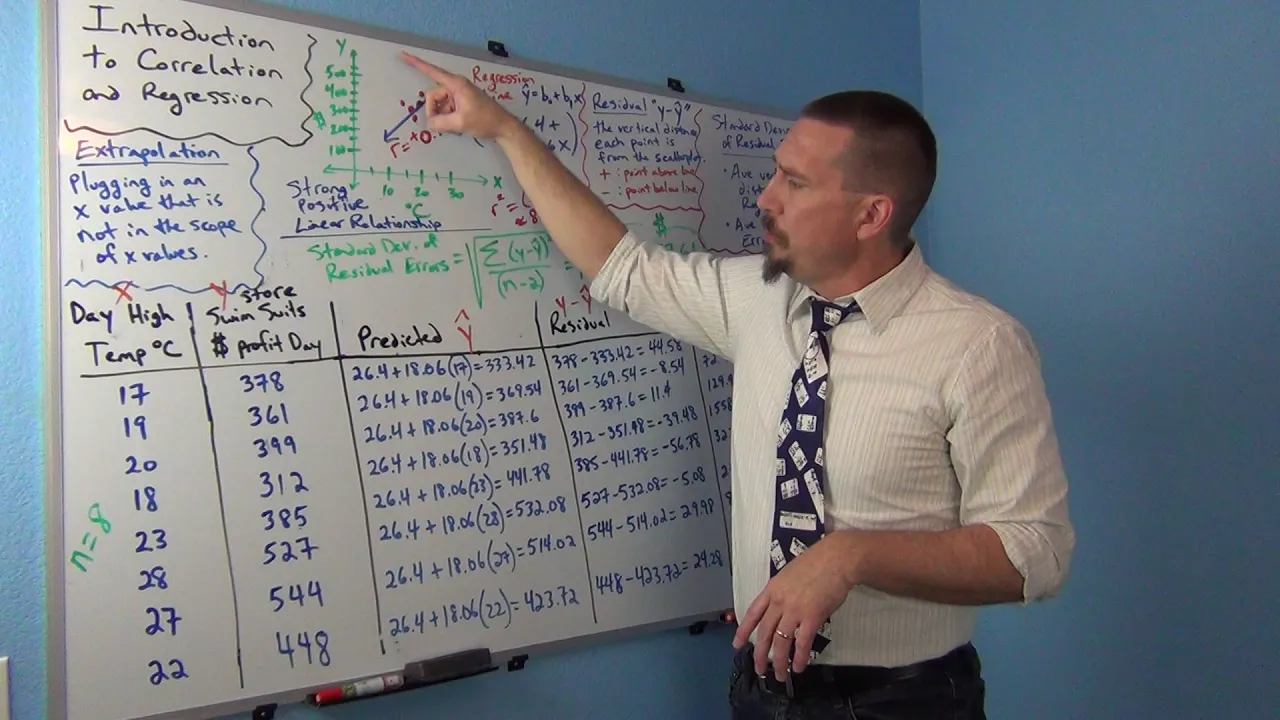 Introduction
to Correlation
and Regression
Extrapolation
Plugging in an
x value that is
not in the scope
of x values.
Y
500
400
300
200
100
$
10 20 30 X
°C
r=
Strong
Positive
Linear Relationship
Regression
ŷ = b₀ + b₁x
r² =
Residual "y-ŷ"
the vertical distance
each point is
from the scatterplot.
+ : point above line
- : point below line
Standard Dev.
of Residual
• Ave
• Ave
Standard Dev. of
Residual Errors = √ Σ(y-ŷ)² / (n-2) =
$
X Y store
Day High
Temp °C
Swim Suits
$ profit Day
Predicted Ŷ
Y-Ŷ
Residual
17 378 26.4+18.06(17)=333.42 378-333.42=44.58
19 361 26.4+18.06(19)=369.54 361-369.54=-8.54
20 399 26.4+18.06(20)=387.6 399-387.6=11.4
18 312 26.4+18.06(18)=351.48 312-351.48=-39.48
23 385 26.4+18.06(23)=441.78 385-441.78=-56.78
28 527 26.4+18.06(28)=532.08 527-532.08=-5.08
27 544 26.4+18.06(27)=514.02 544-514.02=29.98
22 448 26.4+18.06(22)=423.72 448-423.72=24.28
n=8